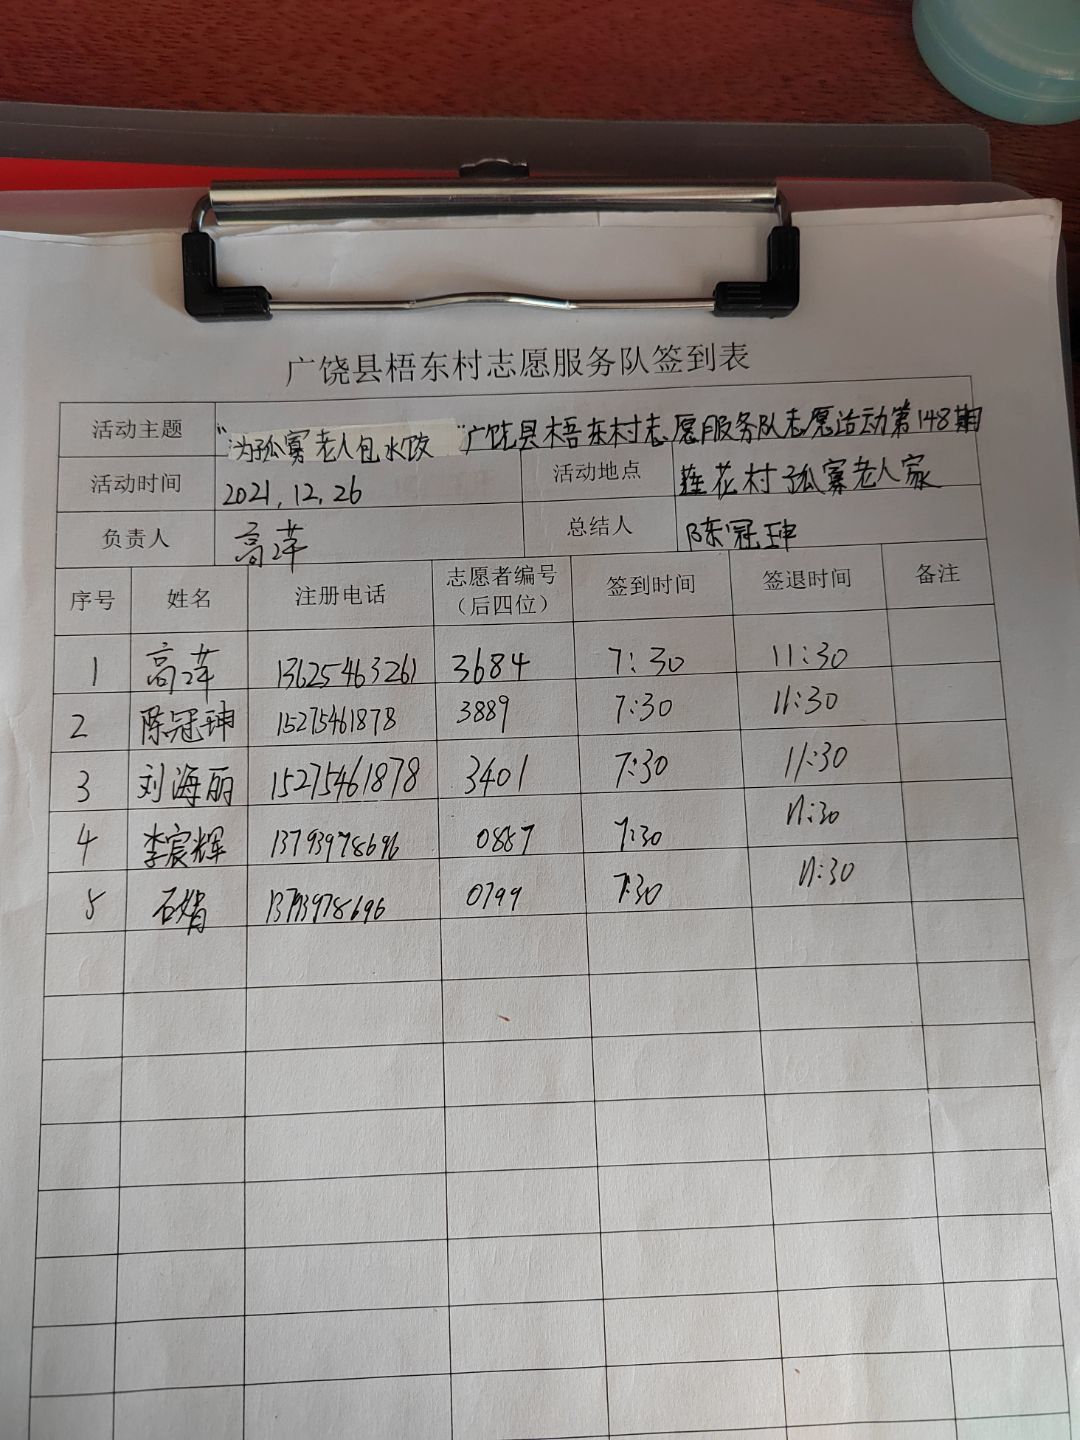 广饶县梧东村志愿服务队签到表
活动主题 "为孤寡老人包水饺"广饶县梧东村志愿服务队志愿活动第148期
活动时间 2021.12.26 活动地点 莲花村孤寡老人家
负责人 高萍 总结人 陈冠珅
序号 姓名 注册电话 志愿者编号（后四位） 签到时间 签退时间 备注
1 高萍 13625463261 3684 7:30 11:30
2 陈冠珅 15275461878 3889 7:30 11:30
3 刘海丽 15275461878 3401 7:30 11:30
4 李宸辉 13793978696 0887 7:30 11:30
5 石婧 13793978696 0799 7:30 11:30